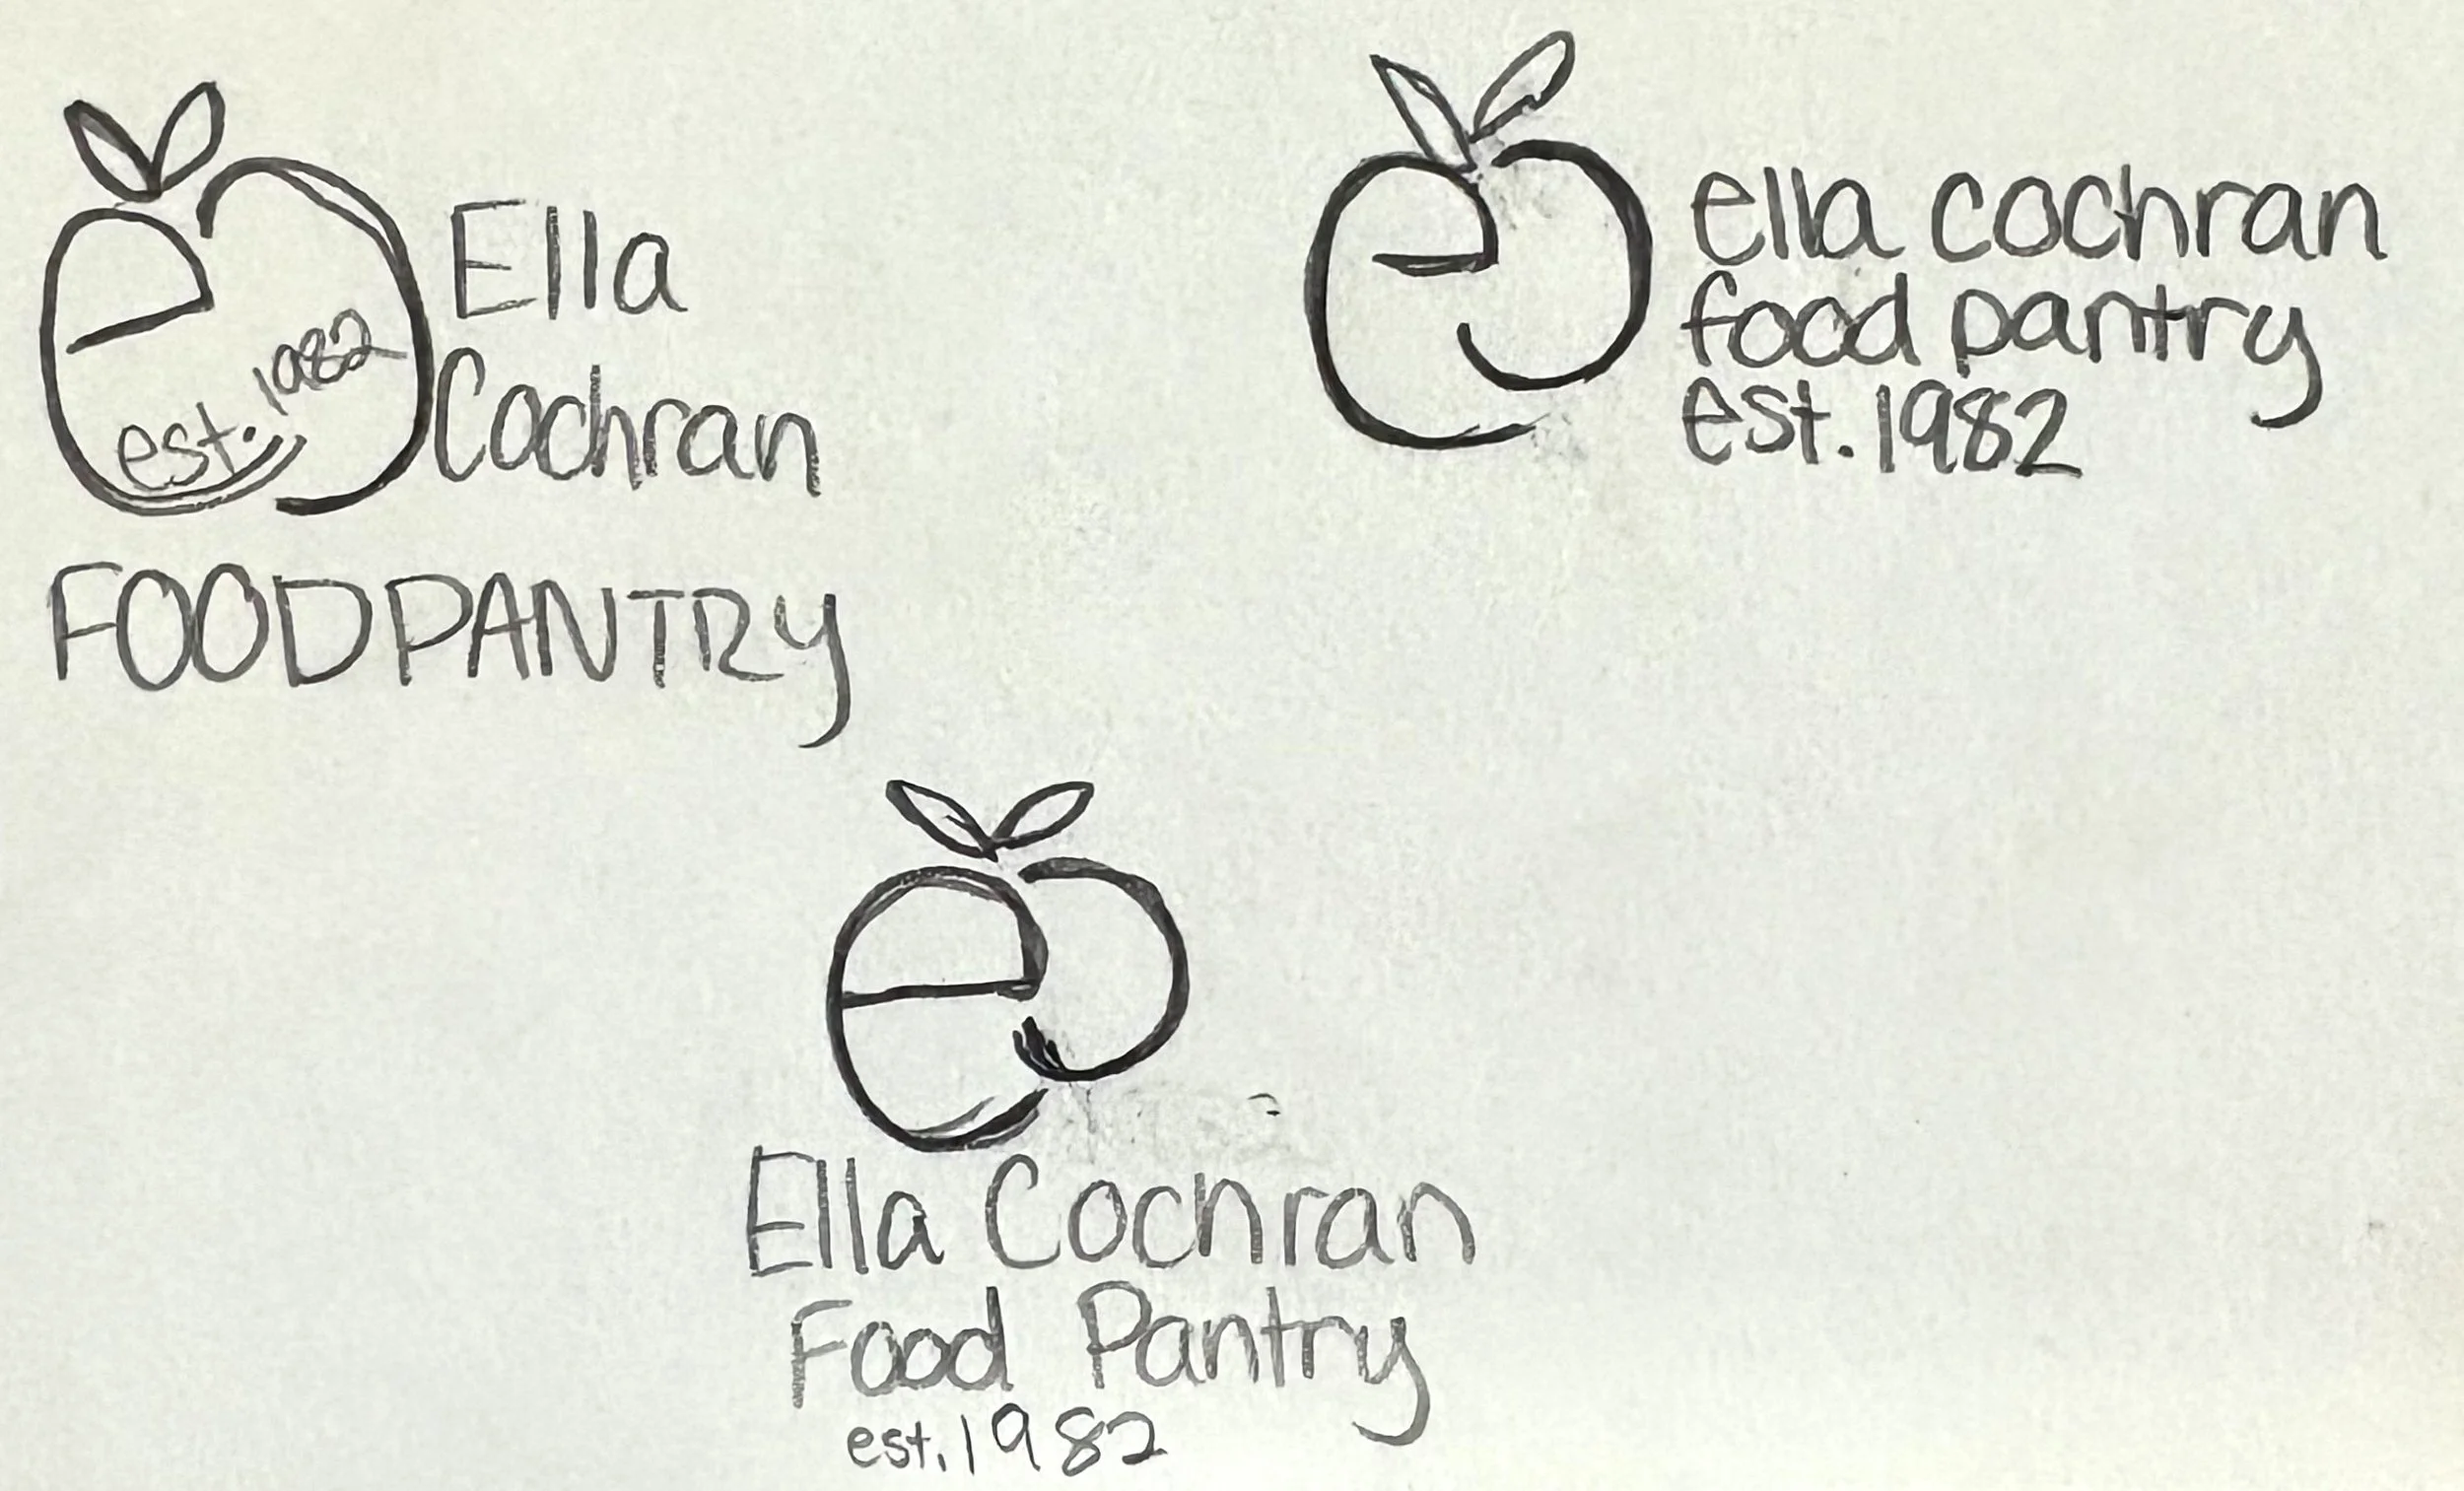 e
est. 1982
Ella
Cochran
FOOD PANTRY
e
ella cochran
food pantry
est. 1982
e
Ella Cochran
Food Pantry
est. 1982